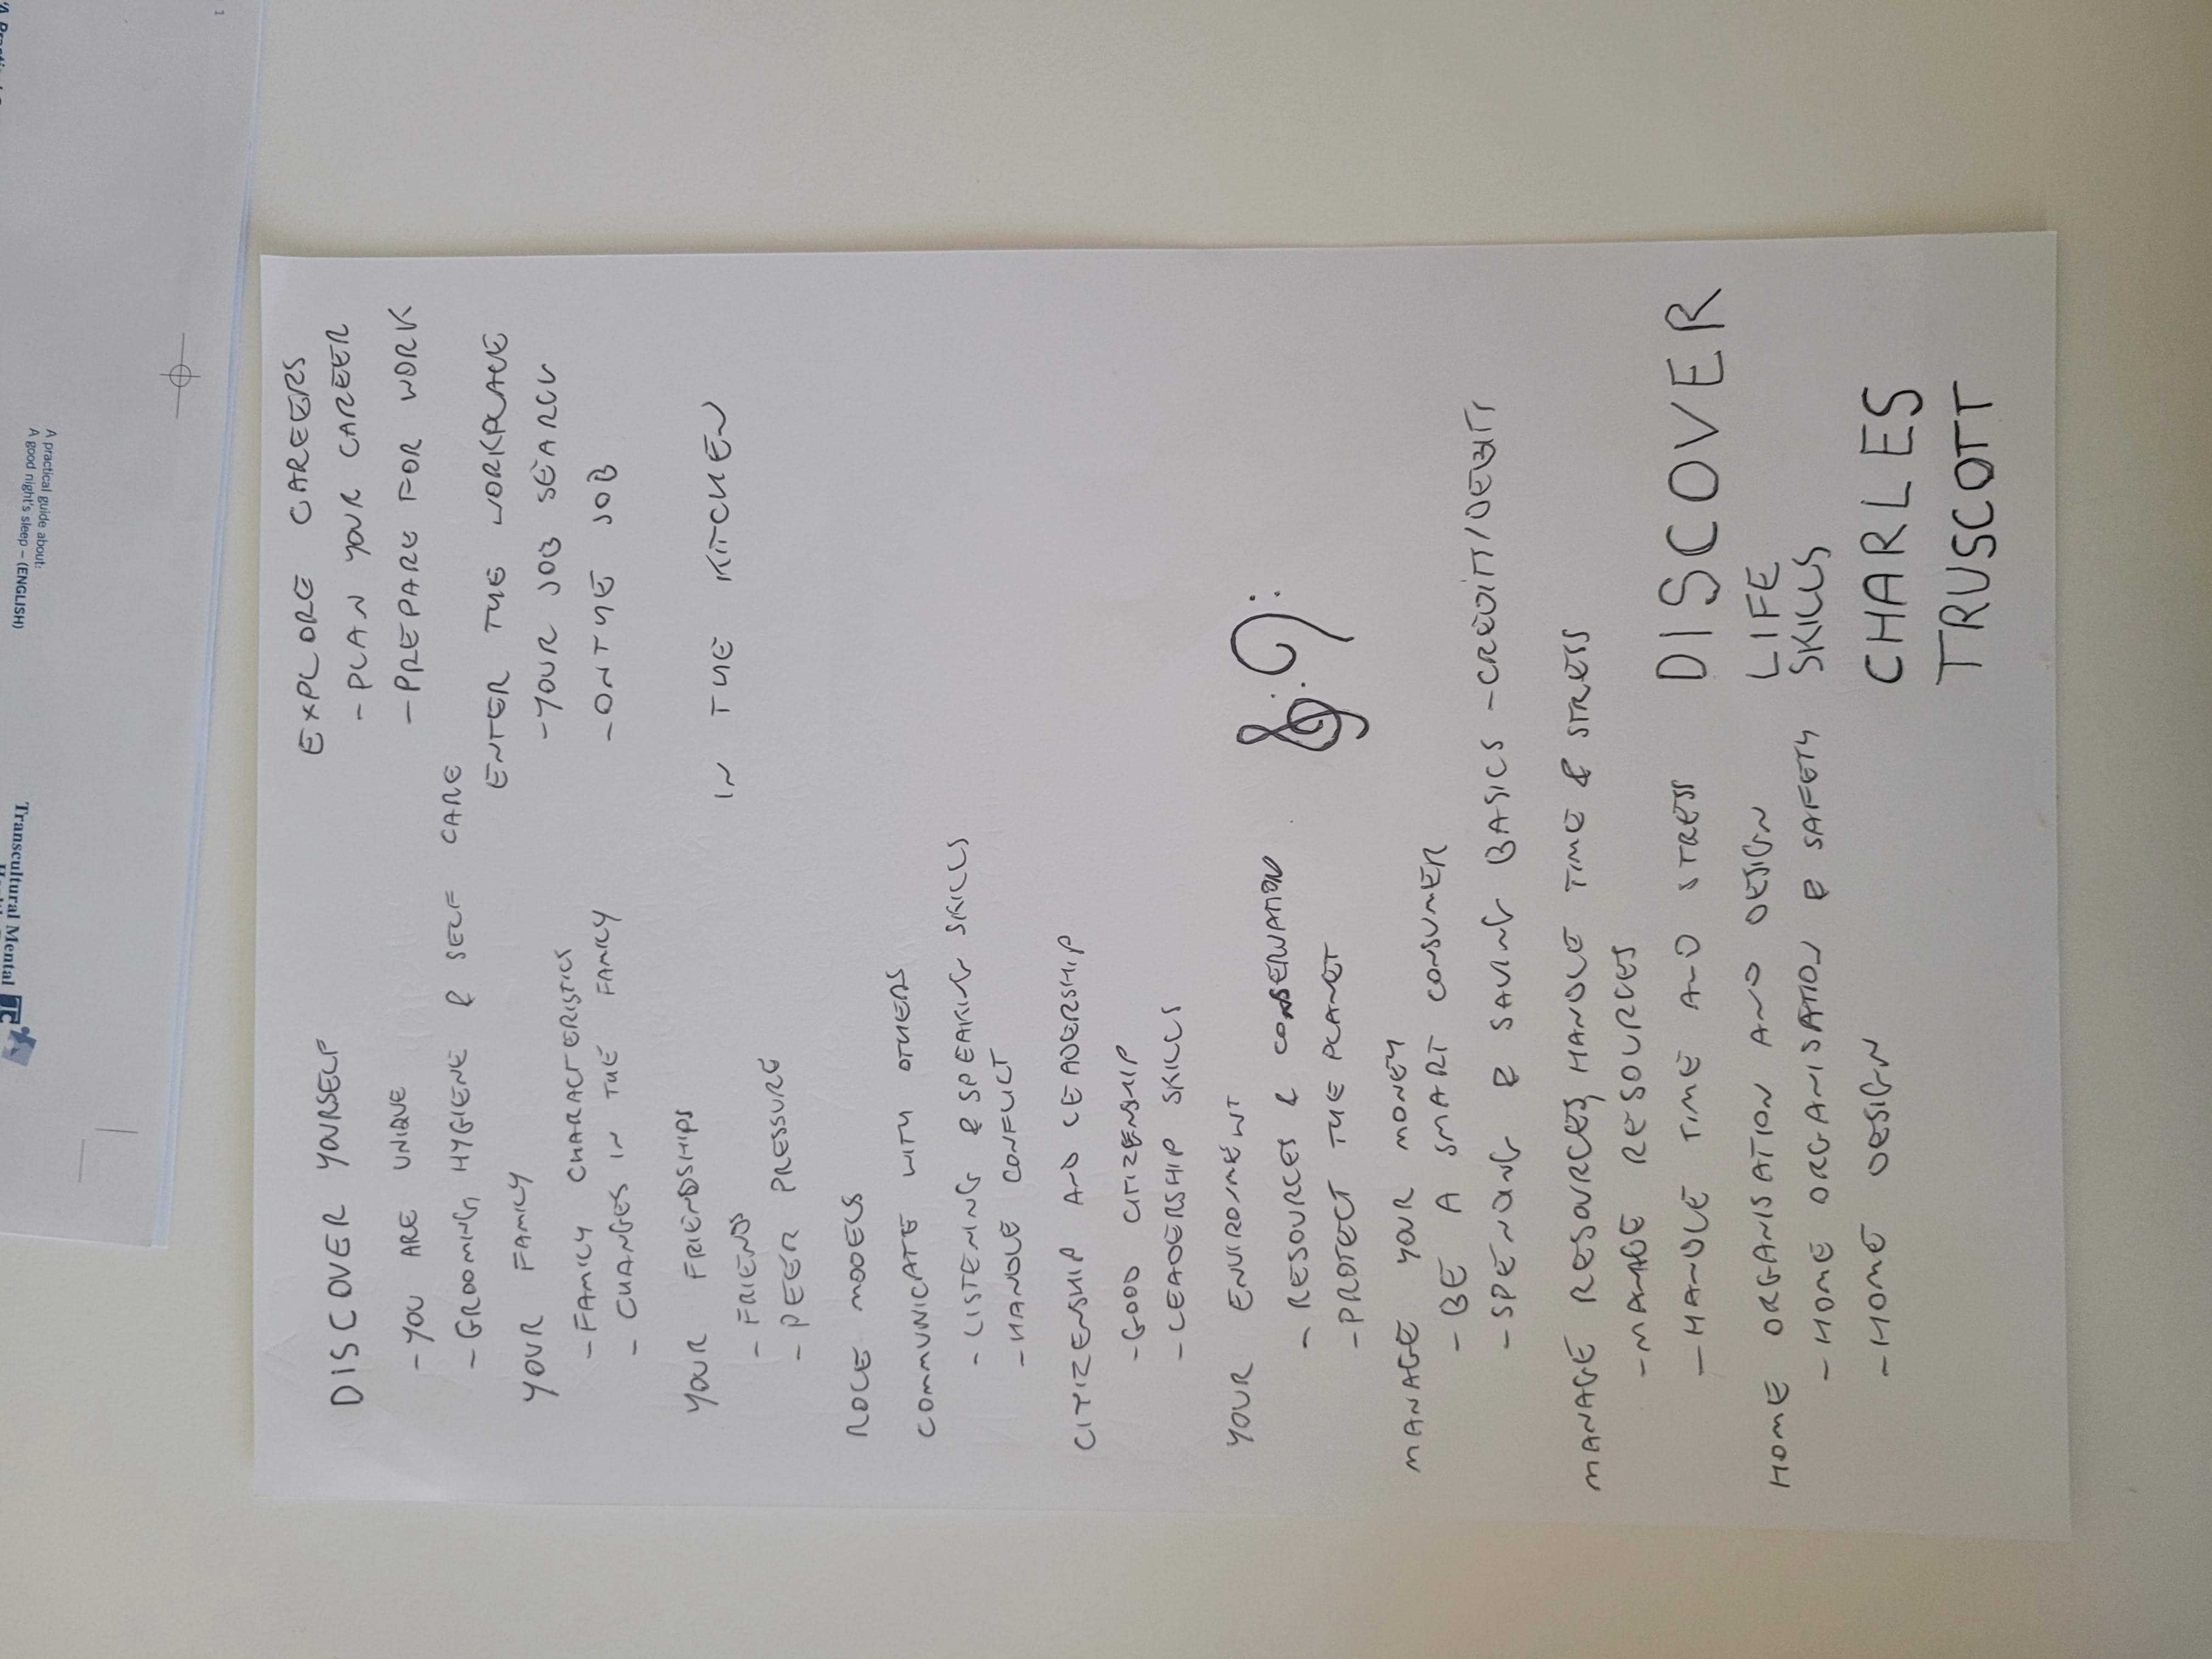 Transcultural Mental
A practical guide about:
A good night's sleep – (ENGLISH)
1
DISCOVER YOURSELF
- YOU ARE UNIQUE
- GROOMING, HYGIENE & SELF CARE
YOUR FAMILY
- FAMILY CHARACTERISTICS
- CHANGES IN THE FAMILY
YOUR FRIENDSHIPS
- FRIENDS
- PEER PRESSURE
ROLE MODELS
COMMUNICATE WITH OTHERS
- LISTENING & SPEAKING SKILLS
- HANDLE CONFLICT
CITIZENSHIP AND LEADERSHIP
- GOOD CITIZENSHIP
- LEADERSHIP SKILLS
YOUR ENVIRONMENT
- RESOURCES & CONSERVATION
- PROTECT THE PLANET
MANAGE YOUR MONEY
- BE A SMART CONSUMER
- SPENDING & SAVING BASICS - CREDITS/DEBITS
MANAGE RESOURCES, HANDLE TIME & STRESS
- MANAGE RESOURCES
- HANDLE TIME AND STRESS
HOME ORGANISATION AND DESIGN
- HOME ORGANISATION & SAFETY
- HOME DESIGN
EXPLORE CAREERS
- PLAN YOUR CAREER
- PREPARE FOR WORK
ENTER THE WORKPLACE
- YOUR JOB SEARCH
- ON THE JOB
IN THE KITCHEN
DISCOVER
LIFE
SKILLS
CHARLES
TRUSCOTT